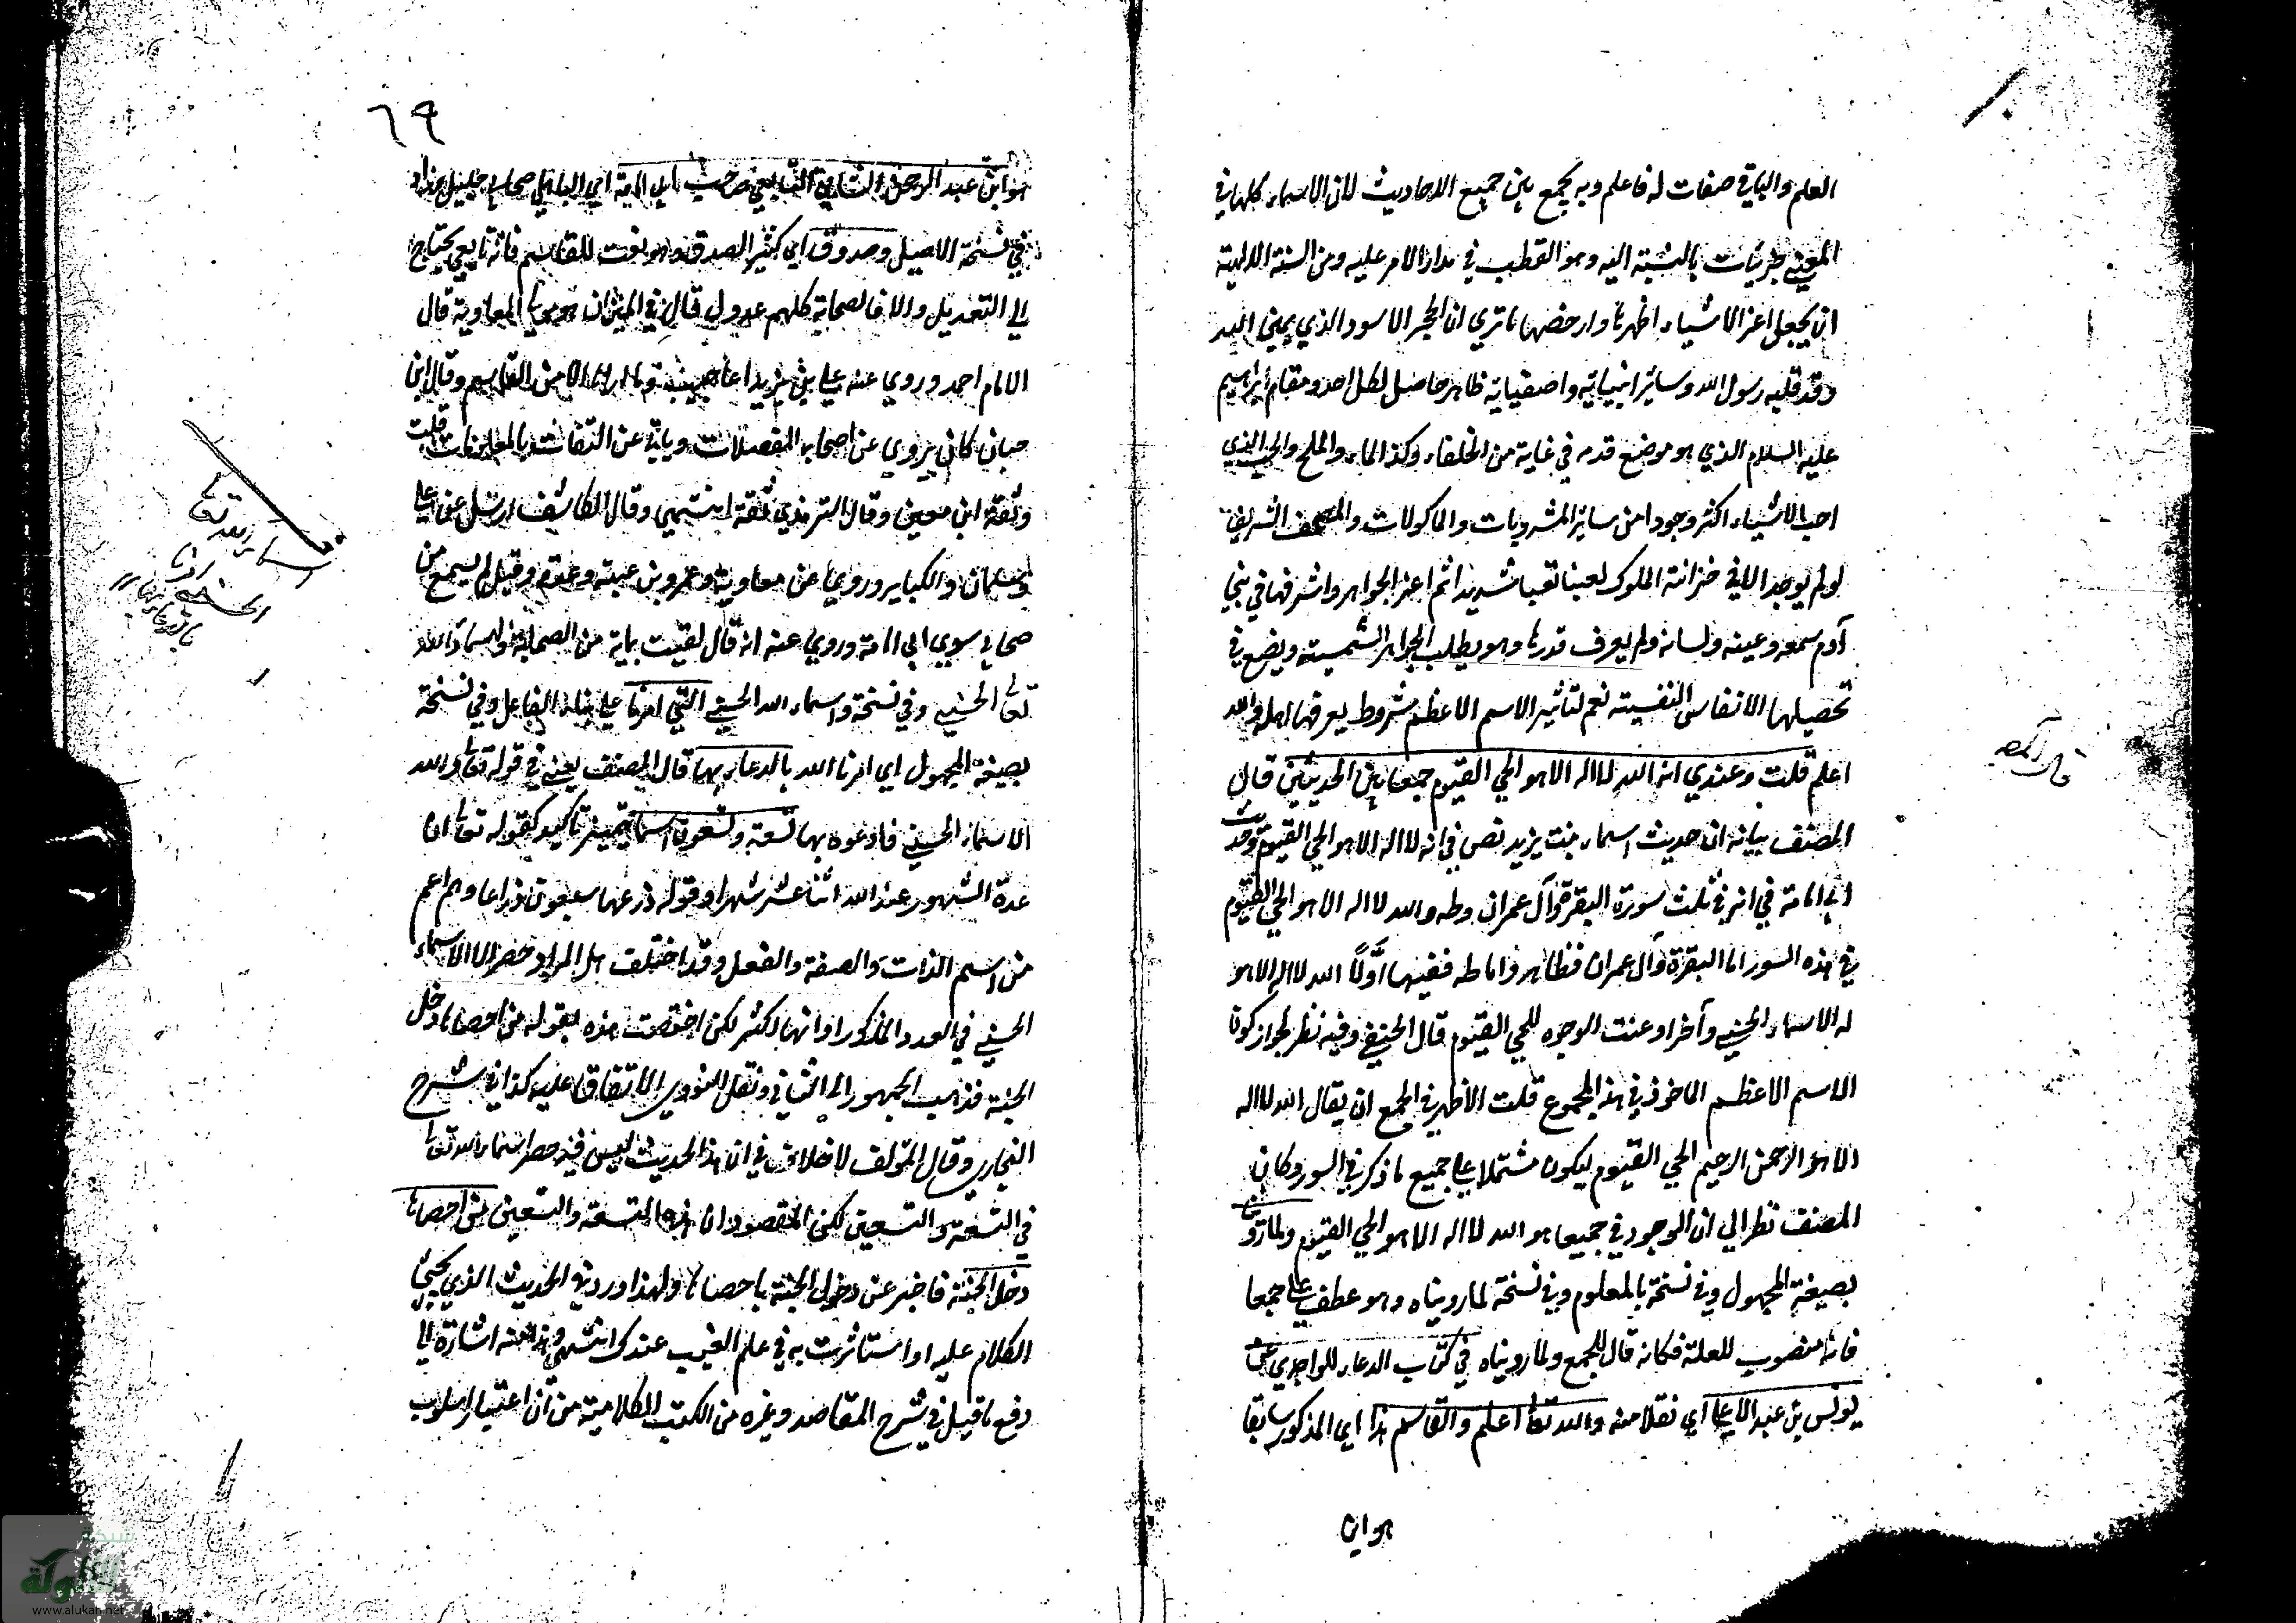 العلم والباقي صفات له فاعلم وبه يجمع بين جميع الاحاديث لان الاسماء كلها في
المعني جزئيات بالنسبة اليه وهو القطب في مدار الامر عليه ومن السنة الالهية
ان يجعل اعز الاشياء اظهرها وارخصها ما تري ان الحجر الاسود الذي يمين الله
وقد قبله رسول الله وسائر انبيائه واصفيائه ظاهر حاصل لكل احد ومقام ابراهيم
عليه السلام الذي هو موضع قدمه في غاية من الخفاء وكذا الماء والملح والذي
احب الاشياء اكثر وجودا من سائر المشروبات والماكولات والمصحف الشريف
لو لم يوجد الا في خزانة الملوك لعبنا تعبا شديدا ثم اعز الجواهر واشرفها في بني
آدم سمعه وعينه ولسانه ولم يعرف قدرها وهو يطلب الجواهر الثمينة ويضع في
تحصيلها الانفاس النفيسة نعم لتاثير الاسم الاعظم شروط يعرفها اهله والله
اعلم قلت وعندي انه الله لا اله الا هو الحي القيوم جمعا بين الحديثين قال
المصنف بيانه ان حديث اسماء بنت يزيد نص في انه لا اله الا هو الحي القيوم وحديث
ابي امامة في انه في ثلث سورة البقرة وآل عمران وطه والله لا اله الا هو الحي القيوم
في هذه السور اما البقرة وآل عمران فظاهر واما طه ففيها اولا الله لا اله الا هو
له الاسماء الحسني وآخرا وعنت الوجوه للحي القيوم قال الحنفي وفيه نظر لجواز كون
الاسم الاعظم الماخوذ في هذا المجموع قلت الاظهر في الجمع ان يقال الله لا اله
الا هو الرحمن الرحيم الحي القيوم ليكون مشتملا علي جميع ما ذكر في السور وكان
المصنف نظر الي ان الموجود في جميعها هو الله لا اله الا هو الحي القيوم ولما روينا
بصيغة المجهول وفي نسخة بالمعلوم وفي نسخة لما رويناه وهو عطف علي جمعا
فانه منصوب للعلة فكانه قال للجمع ولما رويناه في كتاب الدعاء للواحدي عن
يونس بن عبد الاعلي اي نقلا منه والله تعا اعلم والقاسم هذا اي المذكور سابقا
هو ابن
قال المص
٦٩
هو ابن عبد الرحمن الشامي التابعي صاحب ابي امامة اي الباهلي صحابي جليل وزاد
في نسخة الاصيل وصدوق اي كثير الصدق وهو نعت للقاسم فانه تابعي يحتاج
الي التعديل والا فالصحابة كلهم عدول قال في الميزان هو مولي المعاوية قال
الامام احمد وروي عنه علي بن يزيد اعاجيب وما اراها الا من القاسم وقال ابن
حبان كان يروي عن اصحابه المعضلات وياتي عن الثقات بالمقلوبات قلت
وثقه ابن معين وقال الترمذي ثقة انتهي وقال الكاشف ارسل عن علي
وسلمان والكبار وروي عن معاوية وعمرو بن عبسة وعدة وقيل لم يسمع من
صحابي سوي ابي امامة وروي عنه انه قال لقيت مائة من الصحابة واسماء الله
تعالي الحسني وفي نسخة واسماء الله الحسني التي امرنا علي بناء الفاعل وفي نسخة
بصيغة المجهول اي امرنا الله بالدعاء بها قال المصنف يعني في قوله تعالي ولله
الاسماء الحسني فادعوه بها تسعة وتسعون اسما تمييز تاكيد كقوله تعالي ان
عدة الشهور عند الله اثنا عشر شهرا وقوله ذرعها سبعون ذراعا وهو اعم
من اسم الذات والصفة والفعل وقد اختلف هل المراد حصر الاسماء
الحسني في العدد المذكور او انها اكثر لكن اختصت هذه بقوله من احصاها دخل
الجنة فذهب الجمهور الي الثاني ونقل النووي الاتفاق عليه كذا في شرح
البخاري وقال المؤلف لا خلاف في ان هذا الحديث ليس فيه حصر اسماء الله تعا
في التسعة والتسعين لكن المقصود ان هذه التسعة والتسعين من احصاها
دخل الجنة فاخبر عن دخول الجنة باحصائها ولهذا ورد في الحديث الذي يجئ
الكلام عليه او استاثرت به في علم الغيب عندك انتهي وهذا منه اشارة الي
دفع ما قيل في شرح المقاصد وغيره من الكتب الكلامية من ان اعتبار اسلوب
اسماء الله تعا
الحسني
شبكة
الألوكة
www.alukah.net